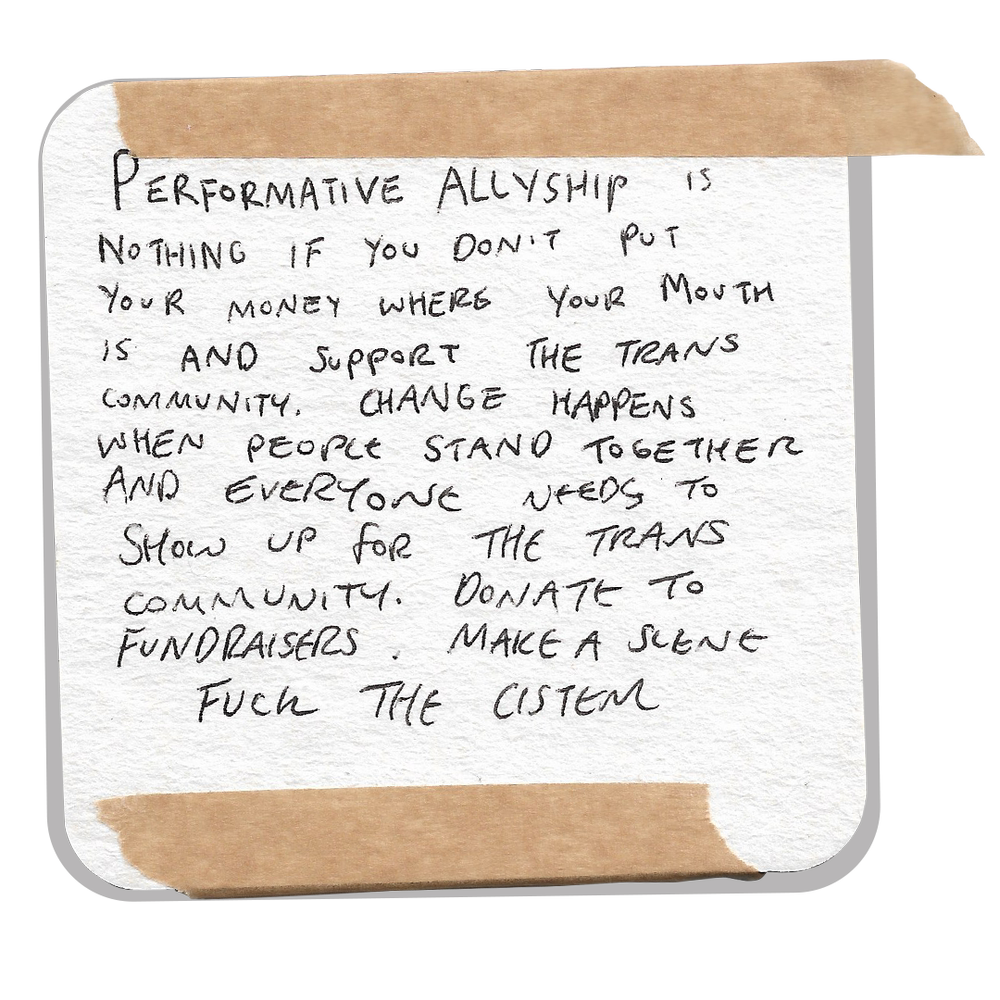 PERFORMATIVE ALLYSHIP IS
NOTHING IF YOU DON'T PUT
YOUR MONEY WHERE YOUR MOUTH
IS AND SUPPORT THE TRANS
COMMUNITY. CHANGE HAPPENS
WHEN PEOPLE STAND TOGETHER
AND EVERYONE NEEDS TO
SHOW UP FOR THE TRANS
COMMUNITY. DONATE TO
FUNDRAISERS. MAKE A SCENE
FUCK THE CISTEM